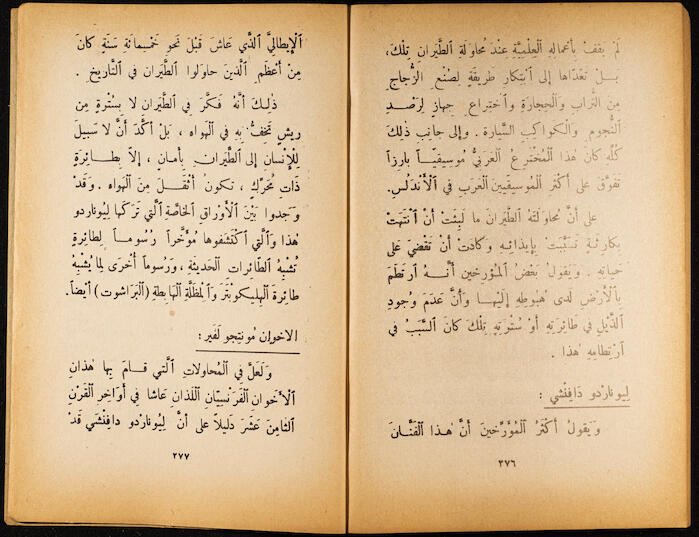 لَمْ يَقِفْ بِأَعْمالِهِ الْعِلْمِيَّةِ عِنْدَ مُحاوَلَةِ الطَّيَرانِ تِلْكَ،
بَـلْ تَعَدَّاها إِلى ٱبْتِكارِ طَرِيقَةٍ لِصُنْعِ الزُّجاجِ
مِنَ التُّرابِ وَالْحِجارَةِ وَٱخْتِراعِ جِهازٍ لِرَصْدِ
النُّجومِ وَالْكَواكِبِ السَّيَّارة . وإلى جانِبِ ذٰلِكَ
كُلِّهِ كانَ هٰذا الْمُخْتَرِعُ الْعَرَبيُّ مُوسيقِيّاً بارِزاً
تَفَوَّقَ على أَكْثَرِ الْمُوسيقِيِّينَ الْعَرَبِ في الْأَنْدَلُسِ.
على أَنَّ مُحاوَلَتَهُ الطَّيَرانَ ما لَبِثَتْ أَنْ ٱنْتَهَتْ
بِكارِثَةٍ تَسَبَّبَتْ بِإِيذائِهِ وَكادَتْ أَنْ تَقْضِيَ على
حَياتِهِ . وَيَقولُ بَعْضُ الْمُؤَرِّخينَ أَنَّـهُ ٱرْتَطَمَ
بِالْأَرْضِ لَدى هُبوطِهِ إِلَيْـها وَأَنَّ عَدَمَ وُجودِ
الذَّيْلِ في طائِرَتِهِ أَوْ سُتْرَتِهِ تِلْكَ كانَ السَّبَبَ في
ٱرْتِطامِهِ هٰذا .
لِيُونارْدو دافِنْشي :
وَيَقولُ أَكْثَرُ الْمُؤَرِّخينَ أَنَّ هٰذا الْفَنَّـانَ
٢٧٦
الْإِيطالِيَّ الَّذي عاشَ قَبْلَ نَحْوِ خَمْسِمائَةِ سَنَةٍ كانَ
مِنْ أَعْظَمِ الَّذينَ حاوَلوا الطَّيَرانَ في التَّاريخِ .
ذٰلِـكَ أَنَّهُ فَكَّرَ في الطَّيَرانِ لا بِسُتْرَةٍ مِن
ريشٍ تَخِفُّ بِهِ في الْهَواءِ ، بَلْ أَكَّدَ أَنْ لا سَبيلَ
لِلْإِنْسانِ إِلى الطَّيَرانِ بِأَمانٍ ، إِلَّا بِطـائِرَةٍ
ذاتِ مُحَرِّكٍ ، تَكونُ أَثْقَـلَ مِنَ الْهَواءِ . وَقَـدْ
وَجَدوا بَيْنَ الْأَوْراقِ الْخاصَّةِ الَّتي تَرَكَها لِيُوناردو
هٰذا وَالَّتي ٱكْتَشَفوها مُؤَخَّراً رُسُوماً لِطائِرةٍ
تُشْبِهُ الطَّائِراتِ الْحَديثةِ ، وَرُسوماً أُخْرى لِما يُشْبِهُ
طائِرةَ الْهِليكوبْتَرَ وَالْمِظَلَّةَ الْهابِطةَ (الْبَراشوت) أَيْضاً.
الاخوان مُونتجو لفير :
وَلَعَلَّ في الْمُحاوَلاتِ الَّتي قـامَ بِها هٰذانِ
الْأَخَوانِ الْفَرَنْسِيَّانِ اللَّذانِ عاشا في أَواخِرِ الْقَرْنِ
الثَّامِنَ عَشَرَ دَليلاً على أَنَّ لِيُوناردو دافِنْشي قَـدْ
٢٧٧